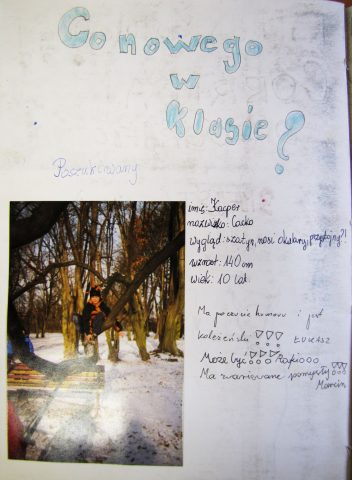 Co nowego
w
klasie?
Poszukiwany
imię: Kacper
nazwisko: Cacko
wygląd: szatyn, nosi okulary, przystojny?!
wzrost: 140 cm
wiek: 10 lat.
Ma poczucie humoru i jest
koleżeński !!! ŁUKASZ
Może być !!!
Ma zwariowane pomysły !!!
Marcin